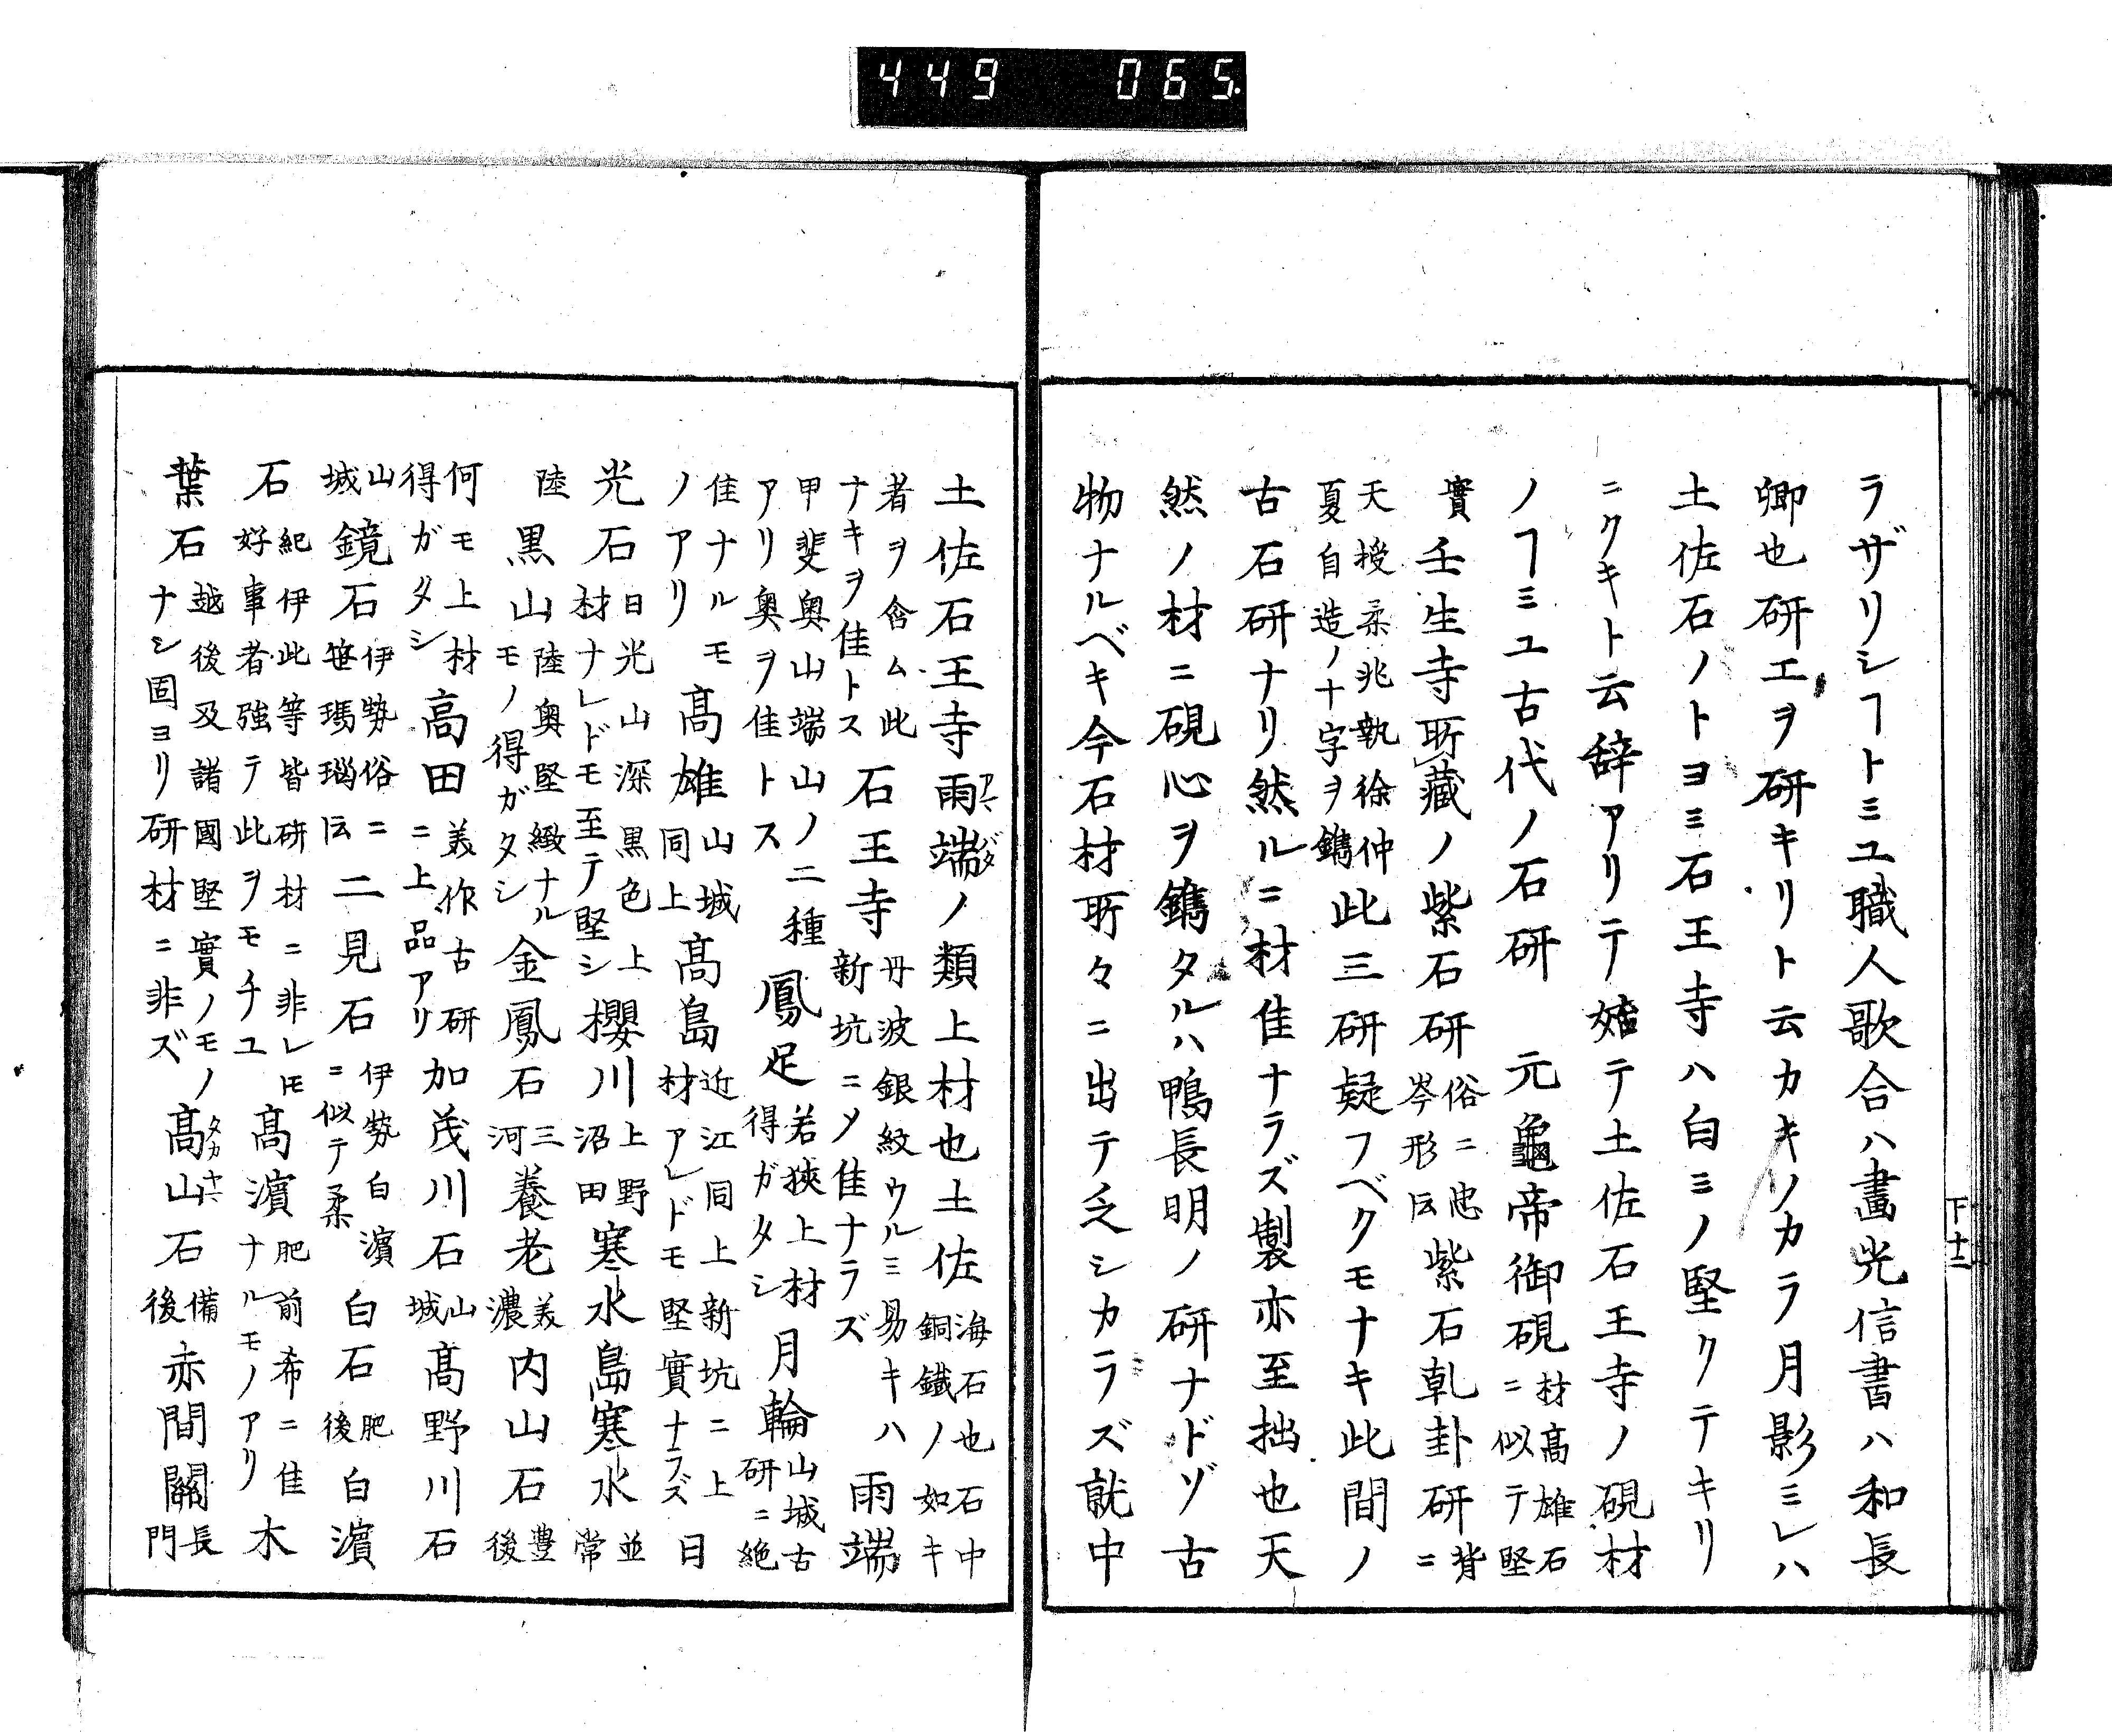 449 065
ラザリシヿトミユ職人歌合ハ畫光信書ハ和長
卿也研エヲ研キリト云カキノカラ月影ミレハ
土佐石ノトヨミ石王寺ハ白ミノ堅クテキリ
ニクキト云辞アリテ始テ土佐石王寺ノ硯材
ノヿミユ古代ノ石研 元龜帝御硯材高雄石ニ似テ堅
實壬生寺所藏ノ紫石研俗ニ忠岑形ト云紫石乹卦研背ニ
天授柔兆執徐仲夏自造ノ十字ヲ鐫此三研疑フベクモナキ此間ノ
古石研ナリ然ルニ材佳ナラズ製亦至拙也天
然ノ材ニ硯心ヲ鐫タルハ鴨長明ノ研ナドゾ古
物ナルベキ今石材所々ニ出テ乏シカラズ就中
下十二
土佐石王寺雨端アマバタノ類上材也土佐海石也石中銅鐵ノ如キ
者ヲ含ム此ナキヲ佳トス石王寺丹波銀紋ウルミ易キハ新坑ニメ佳ナラズ雨端
甲斐奥山端山ノ二種アリ奥ヲ佳トス鳳足若狹上材得ガタシ月輪山城古研ニ絶
佳ナルモノアリ髙雄山城同上髙島近江同上新坑ニ上材アレドモ堅實ナラズ日
光石日光山深黒色上材ナレドモ至テ堅シ櫻川上野沼田寒水島寒水並常
陸黒山陸奥堅緻ナルモノ得ガタシ金鳳石三河養老美濃内山石豊後
何モ上材得ガタシ高田美作古研ニ上品アリ加茂川石山城髙野川石
山城鏡石伊勢俗ニ笹瑪瑙ト云二見石伊勢白濵ニ似テ柔白石肥後白濵
石紀伊此等皆研材ニ非レ𪜈好事者強テ此ヲモチユ髙濵肥前希ニ佳ナルモノアリ木
葉石越後及諸國堅實ノモノナシ固ヨリ研材ニ非ズ髙山石備後赤間關長門